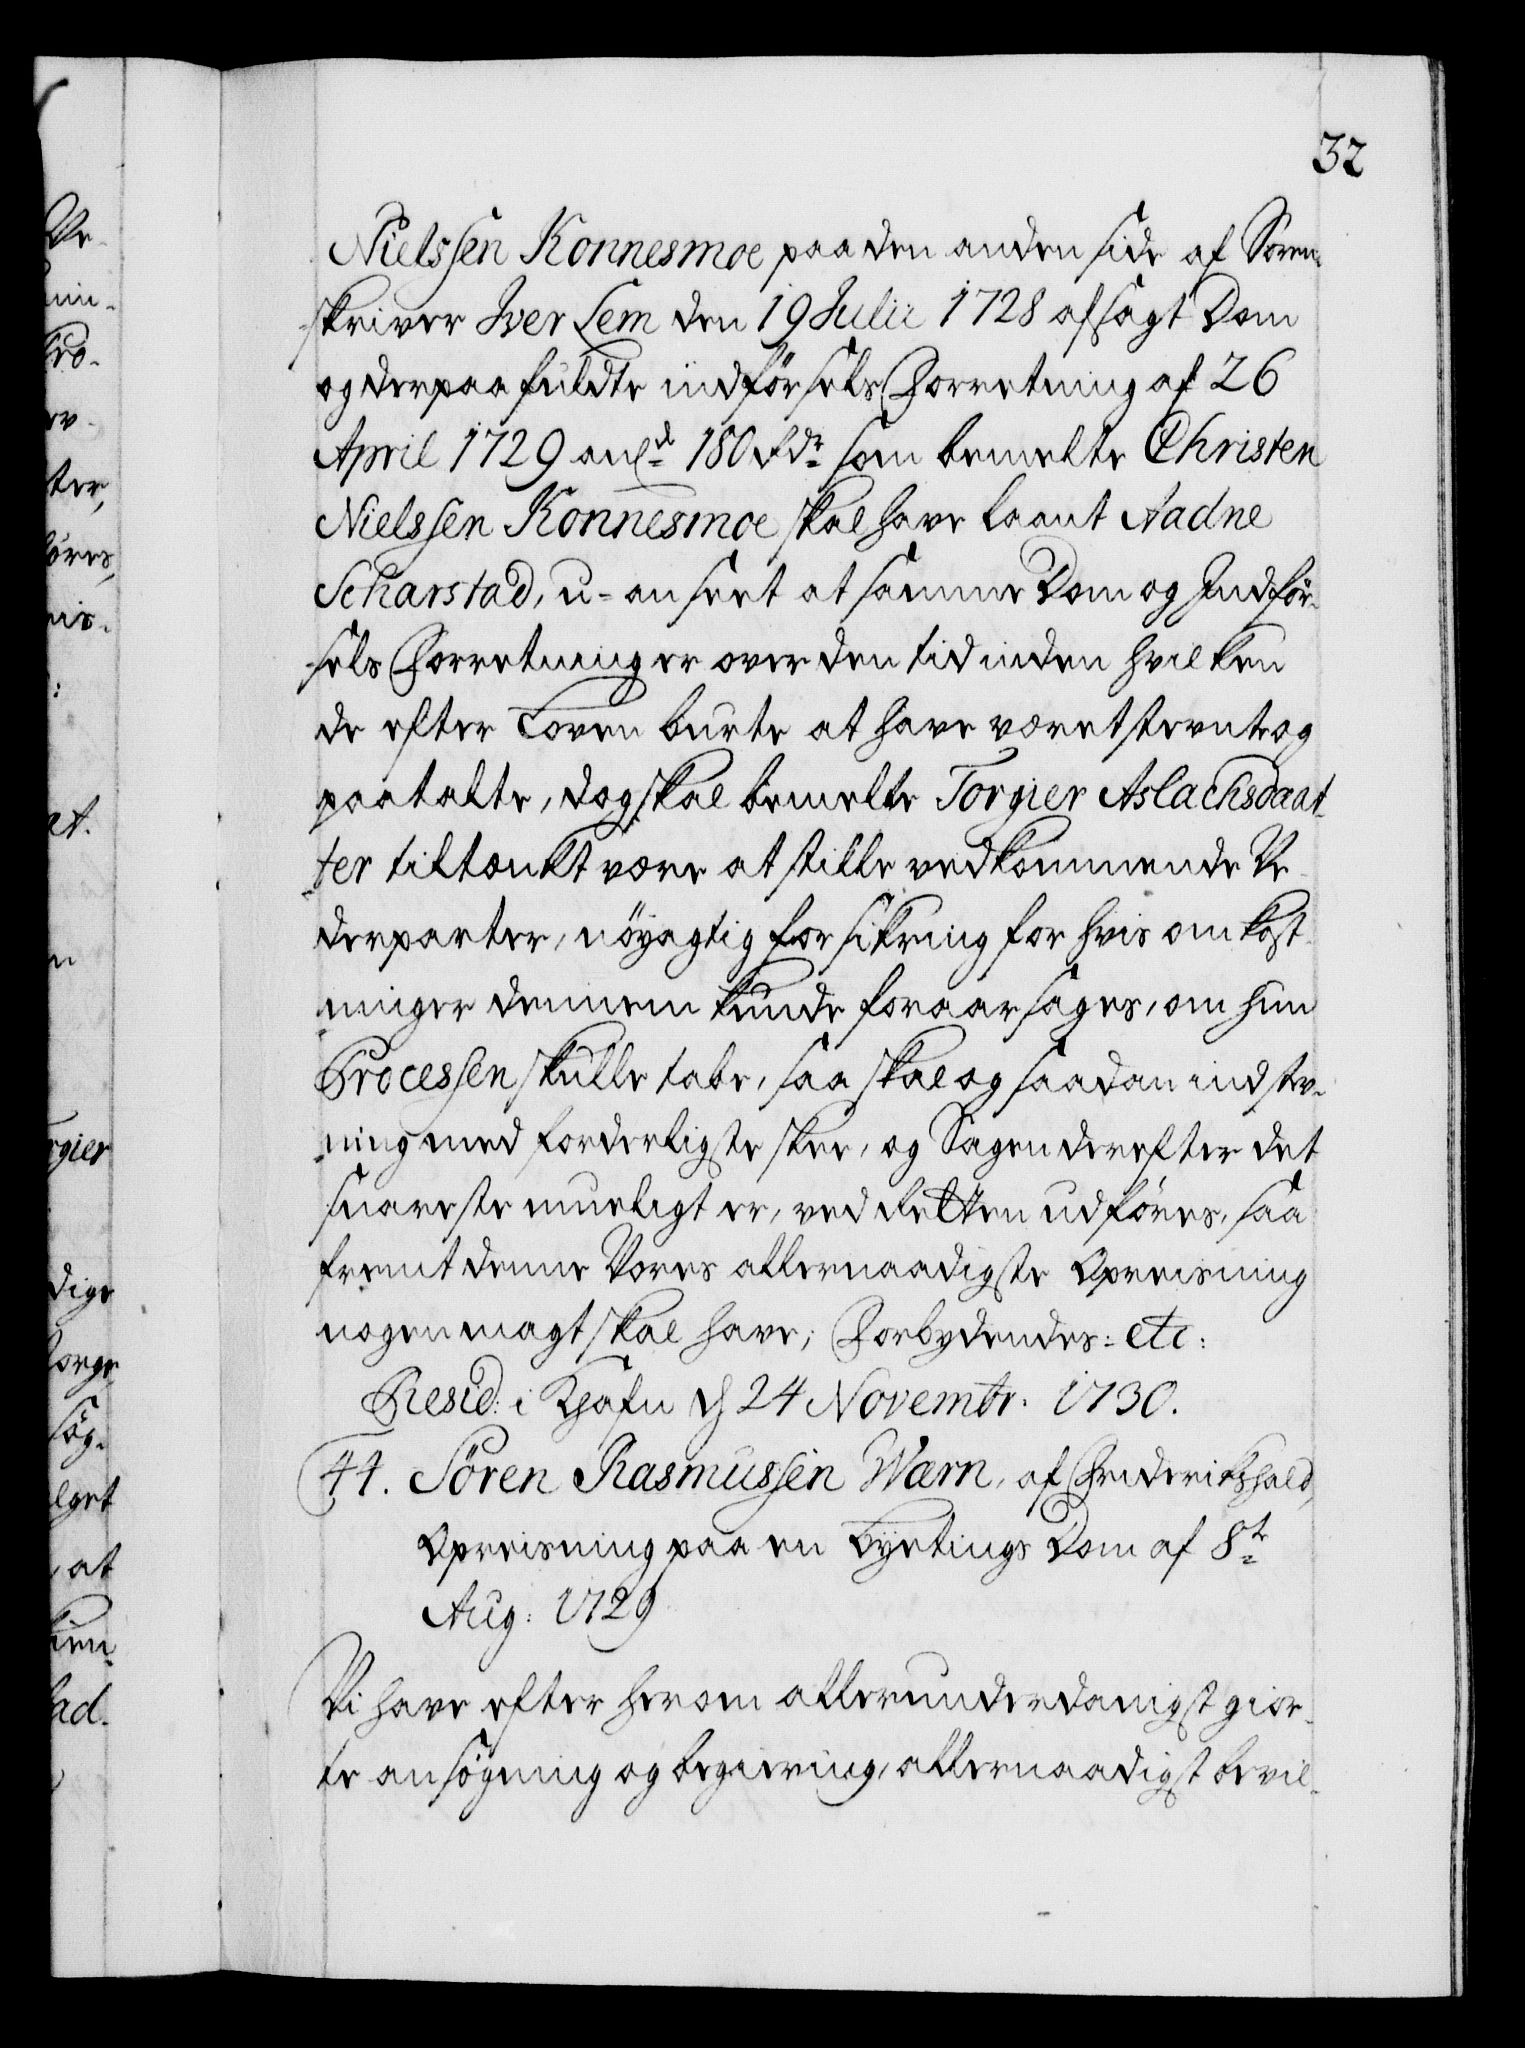 32
Nielssen Konnesmoe paa den anden side af Soren-
skriver Iver Lem den 19 Julii 1728 afsagt Dom
og derpaa fuldte indförsels Forretning af 26
April 1729 anl:d 180 rdr som bemelte Christen
Nielssen Konnesmoe skal have laant Aadne
Scharstad, u-anseet at samme Dom og Indför-
sels Forretning er over den tid inden hvilken
de efter Loven burte at have været stevnt og
paatalte, dog skal bemelte Torgier Aslachsdaat-
ter tiltænkt være at stille vedkommende Ve-
derparter, nöyagtig forsikring for hvis omkost-
ninger dennem kunde foraarsages, om hun
Processen skulle tabe, saa skal og saadan indstev-
ning med forderligste skee, og Sagen derefter det
snareste mueligt er, ved Retten udföres, saa
fremt denne Vores allernaadigste Opreisning
nogen magt skal have, Forbydendes: etc:
Resid: i Khafn d 24 Novembr: 1730.
44. Sören Rasmussen Wærn, af Friderikshald,
Opreisning paa en Byetings Dom af 8te
Aug: 1729
Vi have efter herom allerunderdanigst gior-
te ansögning og begiering, allernaadigst bevil-
Ve-
at.
rgier
dige
Norge
sög-
lget
, at
ter,
öres,